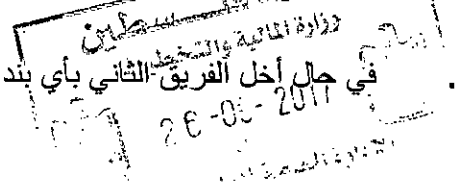 فلسطين
وزارة المالية والتخطيط
في حال أخل الفريق الثاني بأي بند
.
26-0 - 2011